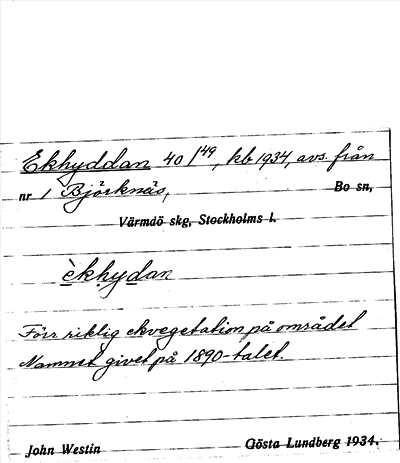 Ekhyddan 40/149, kb 1934, avs. från
nr 1 Björknäs, Bo sn,
Värmdö skg, Stockholms l.
èkhydan
Förr riklig ekvegetation på området
Namnet givet på 1890-talet.
John Westin Gösta Lundberg 1934.